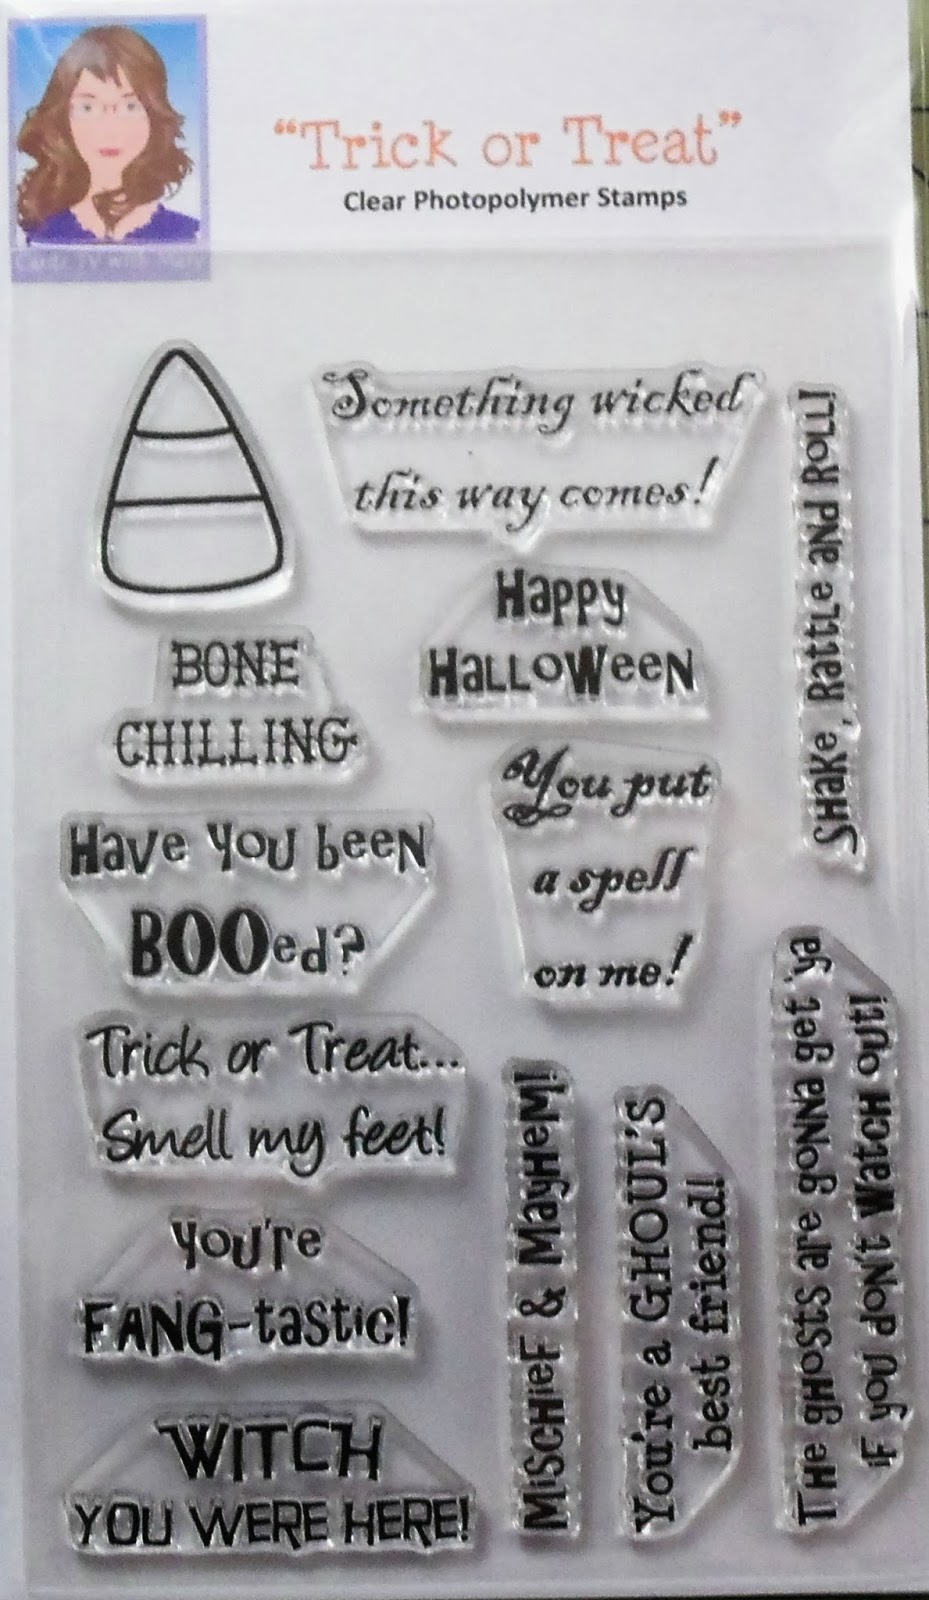 “Trick or Treat”
Clear Photopolymer Stamps
Something wicked
this way comes!
Shake, Rattle and Roll!
Happy
Halloween
BONE
CHILLING
You put
a spell
on me!
Have you been
BOOed?
Trick or Treat...
Smell my feet!
The ghosts are gonna get 'ya
if you don't watch out!
Mischief & Mayhem!
You're a GHOUL'S
best friend!
You're
FANG-tastic!
WITCH
YOU WERE HERE!